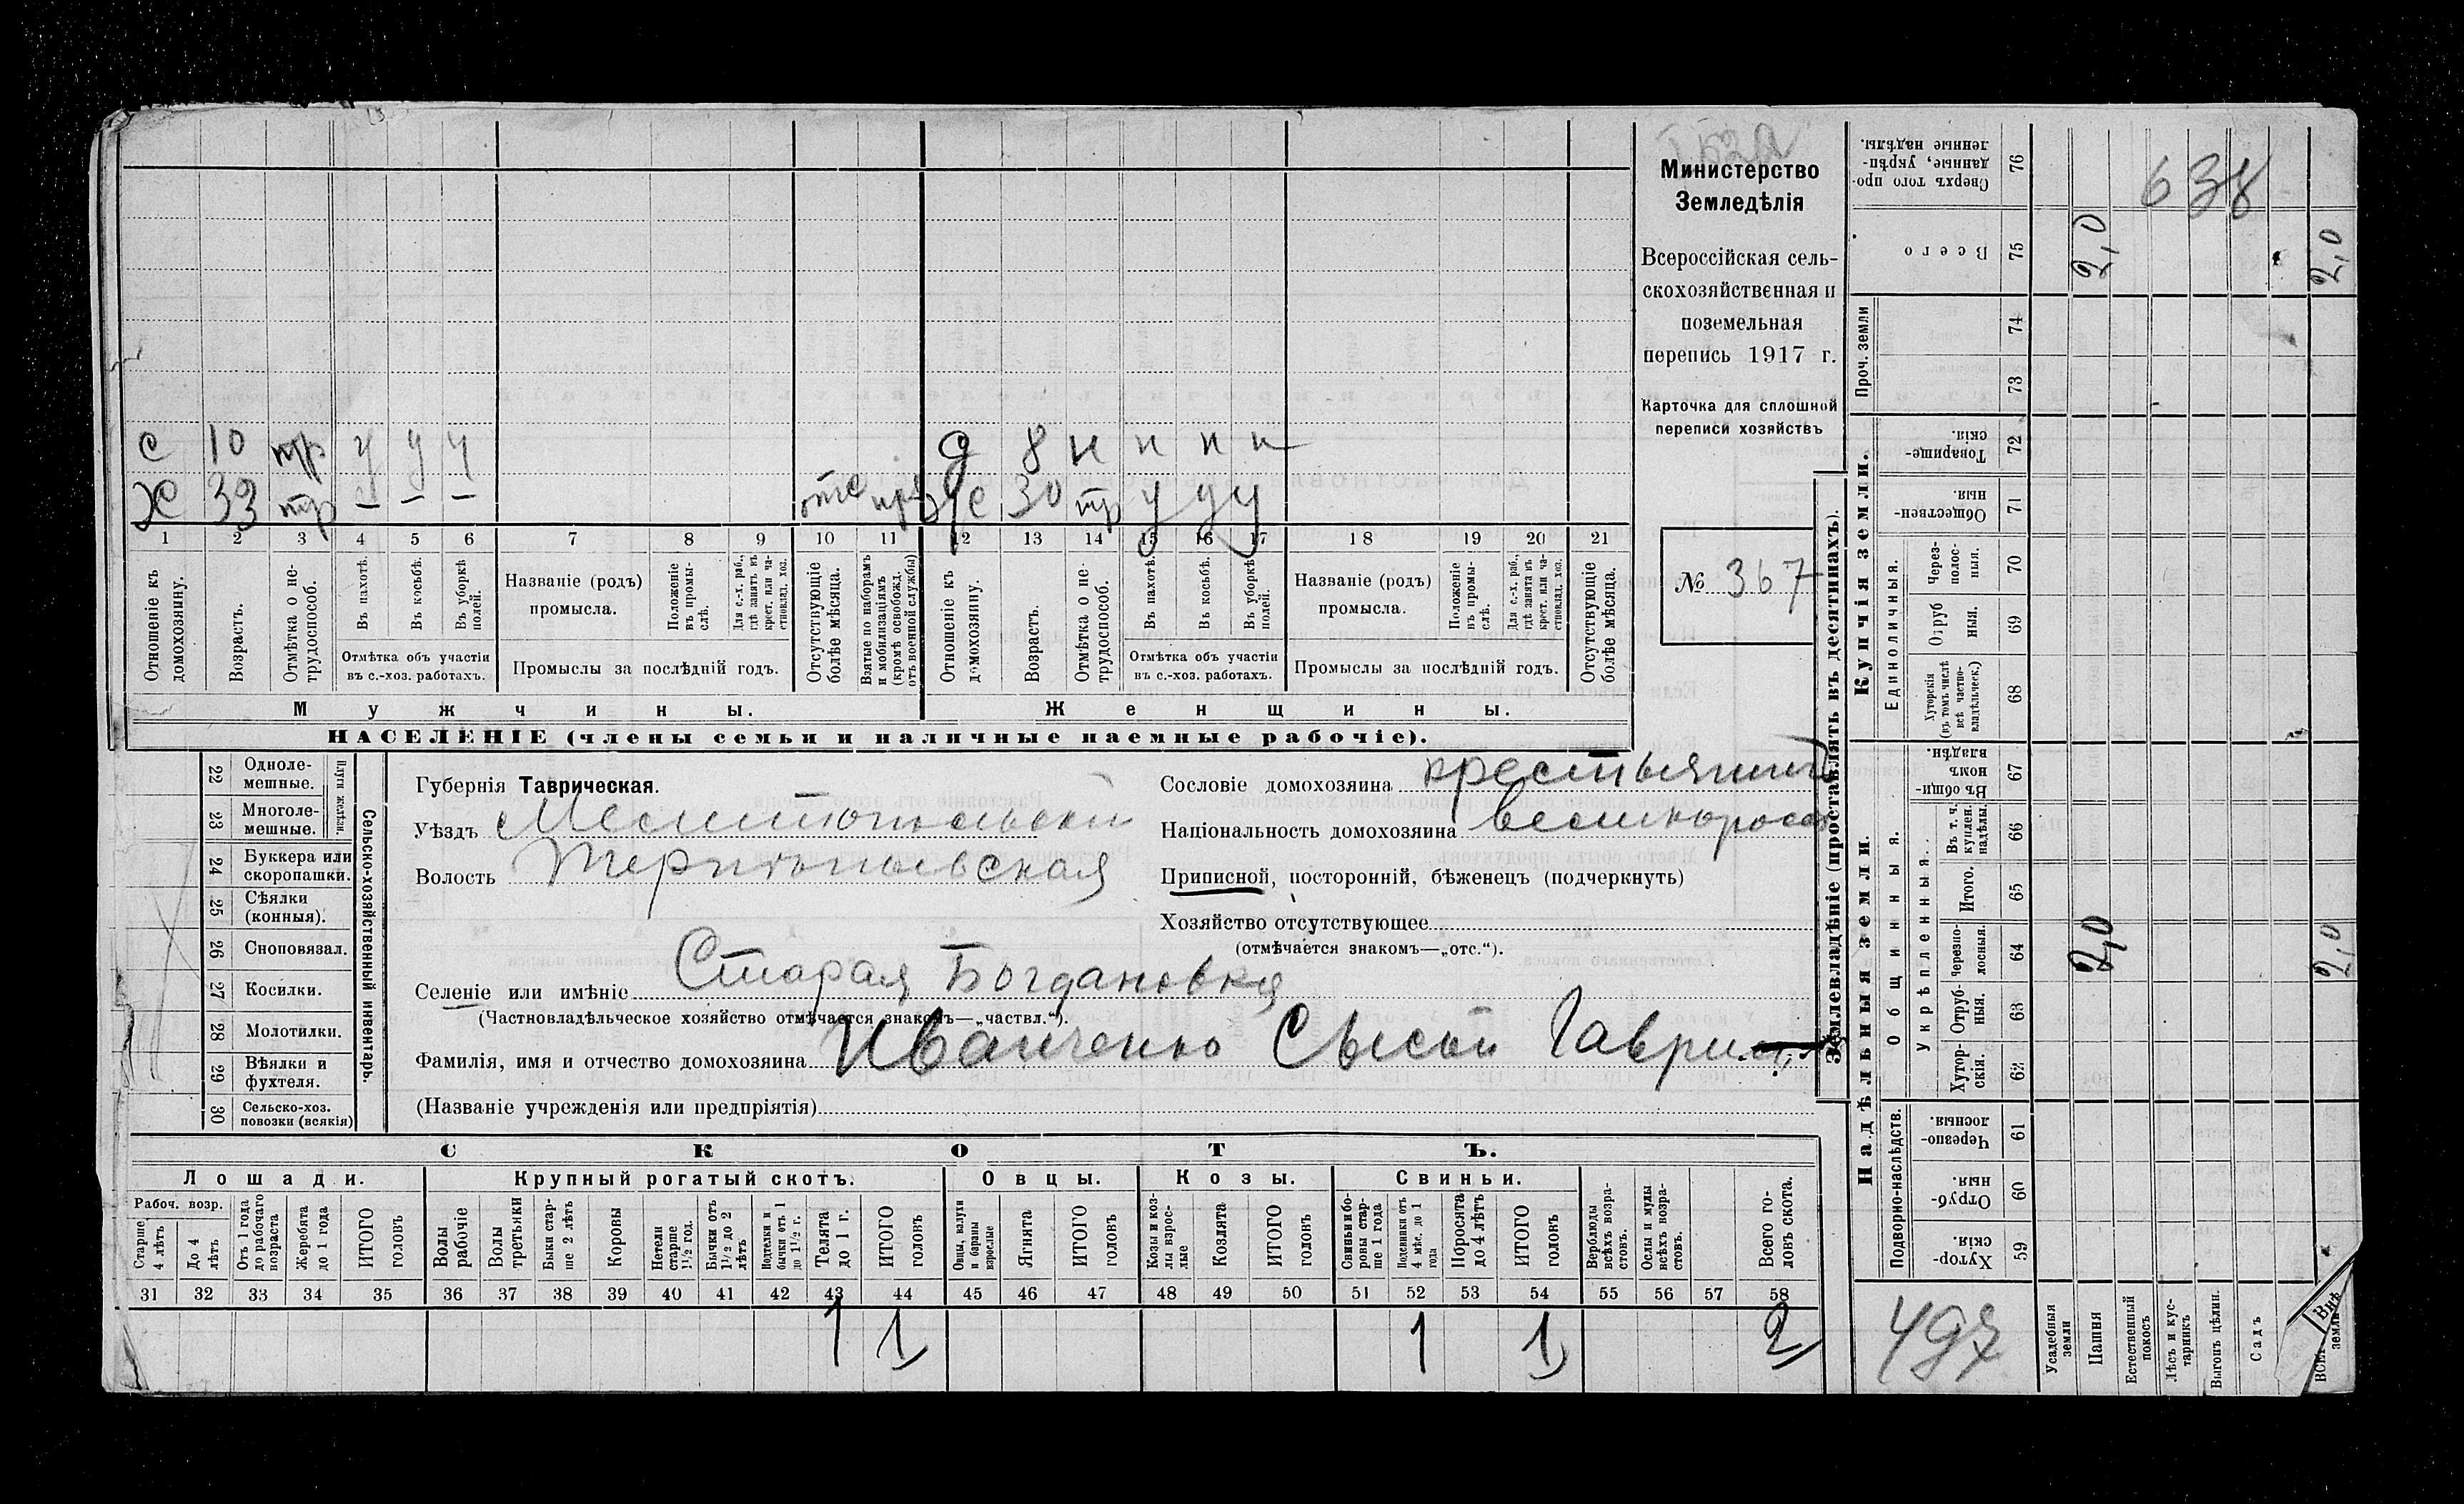 638
Министерство
Земледѣлія
Всероссійская сель-
скохозяйственная и
поземельная
перепись 1917 г.
Карточка для сплошной
переписи хозяйствъ
№ 367
с 10 тр у у у д 8 н н н н
Х 33 тр – – – отс ж 30 тр у у у
1 2 3 4 5 6 7 8 9 10 11 12 13 14 15 16 17 18 19 20 21
Отношеніе къ домохозяину.
Возрастъ.
Отмѣтка о не-трудоспособ.
Въ пахотѣ.
Въ косьбѣ.
Въ уборкѣ полей.
Отмѣтка объ участіи
въ с.-хоз. работахъ.
Названіе (родъ)
промысла.
Положеніе въ промы-слѣ.
Для с.-х. раб., гдѣ занятъ въ крест. или ча-стновлад. хоз.
Промыслы за послѣдній годъ.
Отсутствующіе болѣе мѣсяца.
Взятые по наборамъ и мобилизаціямъ (кромѣ освобожд. отъ военной службы)
Отношеніе къ домохозяину.
Возрастъ.
Отмѣтка о не-трудоспособ.
Въ пахотѣ.
Въ косьбѣ.
Въ уборкѣ полей.
Отмѣтка объ участіи
въ с.-хоз. работахъ.
Названіе (родъ)
промысла.
Положеніе въ промы-слѣ.
Для с.-х. раб., гдѣ занята въ крест. или ча-стновлад. хоз.
Промыслы за послѣдній годъ.
Отсутствующіе болѣе мѣсяца.
Мужчины. Женщины.
НАСЕЛЕНІЕ (члены семьи и наличные наемные рабочіе).
22 Одноле-мешные.
23 Многоле-мешные.
Плуги желѣзн.
24 Буккера или скоропашки.
25 Сѣялки (конныя).
26 Сноповязал.
27 Косилки.
28 Молотилки.
29 Вѣялки и фухтеля.
30 Сельско-хоз. повозки (всякія)
Сельско-хозяйственный инвентарь.
Губернія Таврическая.
Уѣздъ Мелитопольскій
Волость Терпѣньевская
Селеніе или имѣніе Старая Богдановка
(Частновладѣльческое хозяйство отмѣчается знакомъ—„частвл.“).
Фамилія, имя и отчество домохозяина Иванченко Сысой Гаврил.
(Названіе учрежденія или предпріятія)
Сословіе домохозяина крестьянинъ
Національность домохозяина великоросс
Приписной, посторонній, бѣженецъ (подчеркнуть)
Хозяйство отсутствующее
(отмѣчается знакомъ—„отс.“).
СКОТЪ.
Лошади. Крупный рогатый скотъ. Овцы. Козы. Свиньи.
Рабоч. возр.
Старше 4 лѣтъ
До 4 лѣтъ
Отъ 1 года до рабочаго возраста
Жеребята до 1 года
ИТОГО головъ
Волы рабочіе
Волы третьяки
Быки стар-ше 2 лѣтъ
Коровы
Нетели старше 1½ год.
Бычки отъ 1½ до 2 лѣтъ
Подтелки и бычки отъ 1 до 1½ г.
Телята до 1 г.
ИТОГО головъ
Овцы, валухи и бараны взрослые
Ягнята
ИТОГО головъ
Козы и коз-лы взрос-лые
Козлята
ИТОГО головъ
Свиньи и бо-ровы стар-ше 1 года
Подсвинки отъ 4 мѣс. до 1 года
Поросята до 4 лѣтъ
ИТОГО головъ
Верблюды всѣхъ возра-стовъ.
Ослы и мулы всѣхъ возра-стовъ.
Всего го-ловъ скота.
31 32 33 34 35 36 37 38 39 40 41 42 43 44 45 46 47 48 49 50 51 52 53 54 55 56 57 58
1 1 1 1 2
Землевладѣніе (проставлять въ десятинахъ).
Надѣльныя земли. Купчія земли.
Подворно-наслѣдств.
Общинныя.
Укрѣпленныя.
Единоличныя.
Проч. земли
Сверхъ того про-данные, укрѣп-ленные надѣлы. 76
Всего 75 2,0 2,0
74
73
Товарище-скія. 72
Обществен-ныя. 71
Через-полос-ныя. 70
Отруб ныя. 69
Хуторскія (въ томъ числѣ всѣ частно-владѣльческ.) 68
Въ общи-номъ владѣн. 67
Въ т. ч. куплен. надѣлы. 66
Итого. 65
Черезпо-лосныя. 64 2,0 2,0
Отруб-ныя. 63
Хутор-скія. 62
Черезпо-лосныя. 61
Отруб-ныя. 60
Хутор-скія. 59
497
Усадебныя земли
Пашня
Естественный покосъ
Лѣсъ и кус-тарникъ
Выгонъ цѣлин.
Садъ
Внѣ